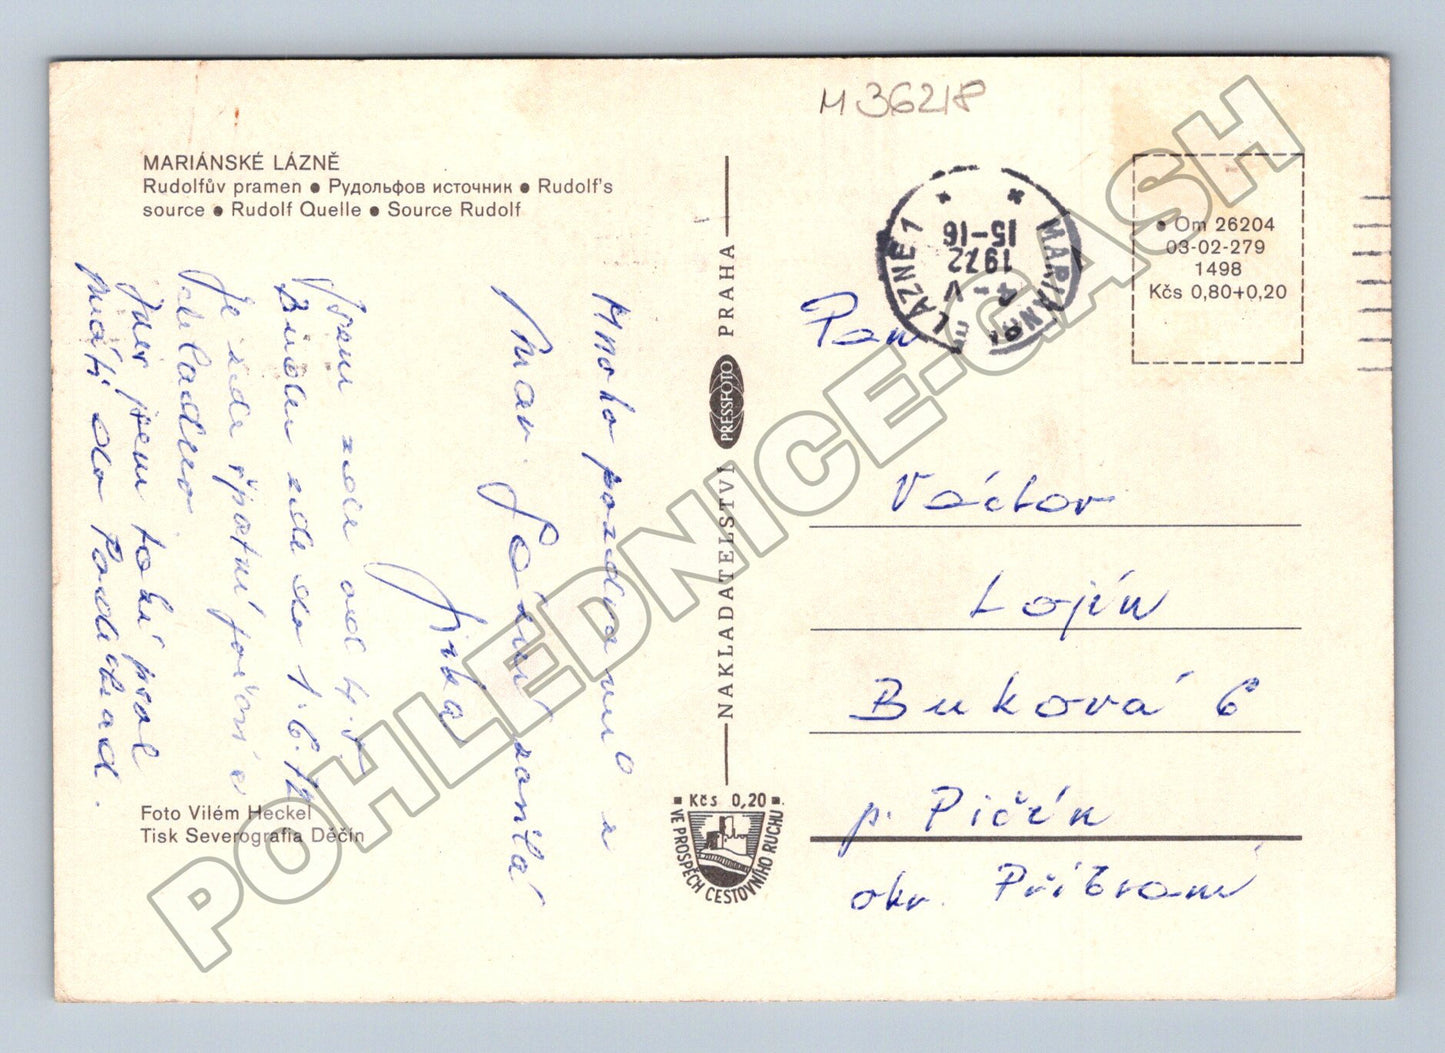 M 36218
MARIÁNSKÉ LÁZNĚ
Rudolfův pramen ● Рудольфов источник ● Rudolf's
source ● Rudolf Quelle ● Source Rudolf
Mnoho pozdravů z
Mar. Lázní zasílá
Jirka
Jsem zde od 4.5.
Budu zde do 1.6.72
Je zde špatné počasí a
chladno
Dnes jsem také psal
do Poděbrad.
Foto Vilém Heckel
Tisk Severografia Děčín
NAKLADATELSTVÍ PRESSFOTO PRAHA
Kčs 0,20
VE PROSPĚCH CESTOVNÍHO RUCHU
MARIÁNSKÉ LÁZNĚ 1
15-16
1972
4-V
● Om 26204
03-02-279
1498
Kčs 0,80+0,20
Pan
Václav
Lojín
Buková 6
p. Pičín
okr. Příbram
POHLEDNICE-CASH